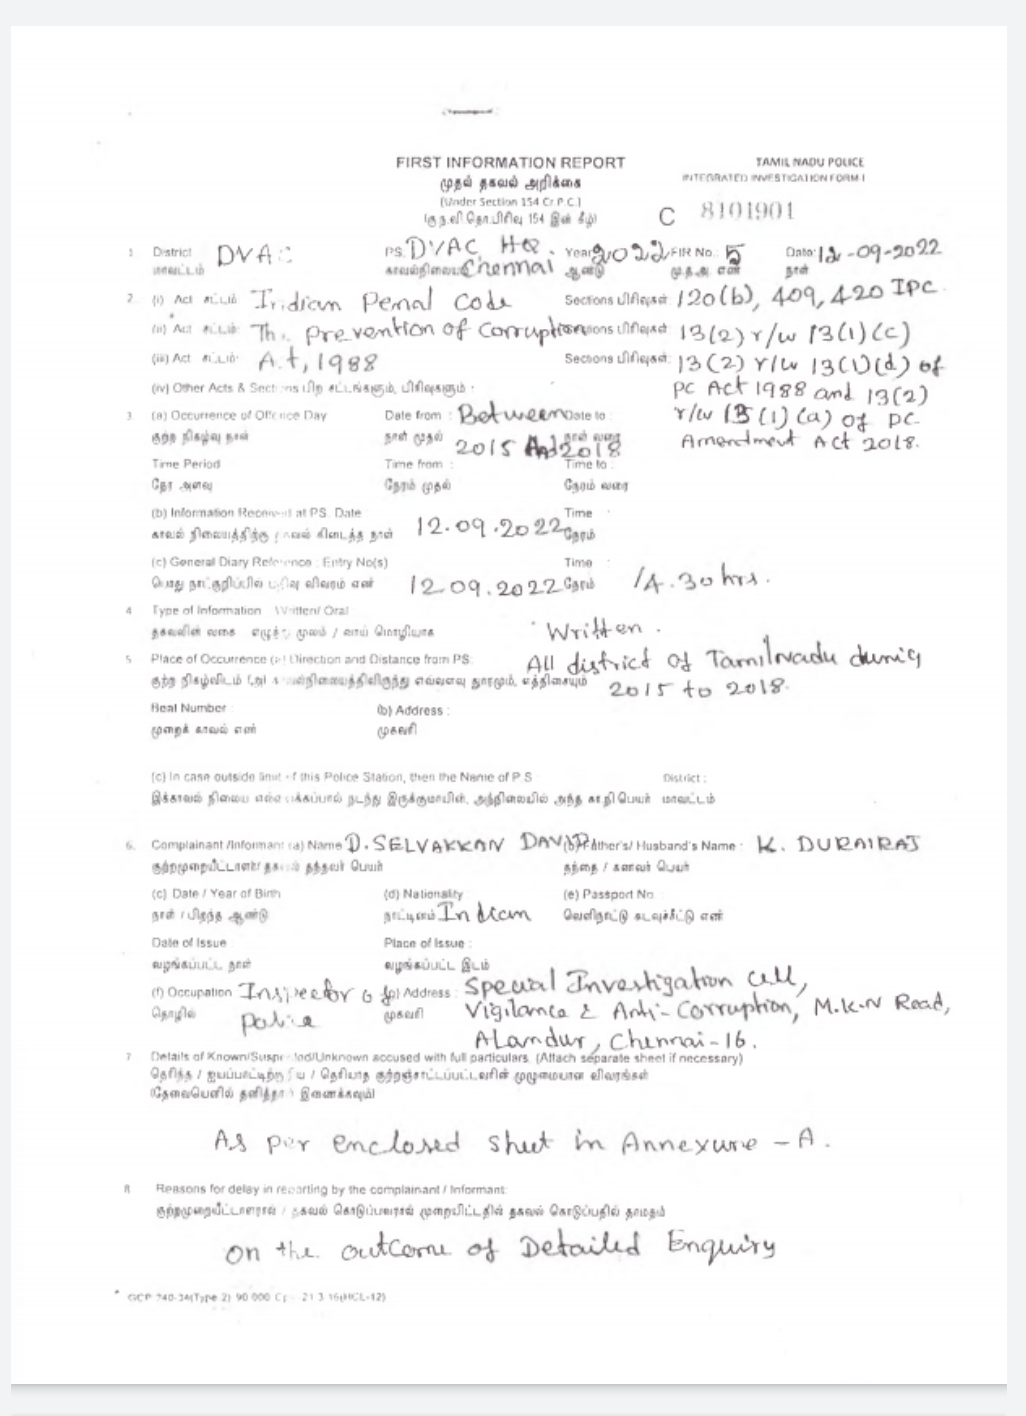 FIRST INFORMATION REPORT
TAMIL NADU POLICE
முதல் தகவல் அறிக்கை
INTEGRATED INVESTIGATION FORM-I
(Under Section 154 Cr.P.C.)
(கு.ந.வி.தொ.பிரிவு 154 இன் கீழ்)
C 8101901
1. District DVAC PS. DVAC, HQ. Year 2022 FIR No.: 5 Date: 12-09-2022
மாவட்டம் காவல்நிலைய Chennai ஆண்டு மு.த.அ. எண் நாள்
2. (i) Act சட்டம் Indian Penal Code Sections பிரிவுகள் 120(b), 409, 420 IPC
(ii) Act சட்டம் The prevention of corruption Sections பிரிவுகள் 13(2) r/w 13(1)(c)
(iii) Act சட்டம் Act, 1988 Sections பிரிவுகள்: 13(2) r/w 13(1)(d) of
(iv) Other Acts & Sections பிற சட்டங்களும், பிரிவுகளும் : PC Act 1988 and 13(2)
3. (a) Occurrence of Offence Day Date from : Between Date to : r/w 13(1)(a) of PC
குற்ற நிகழ்வு நாள் நாள் முதல் 2015 And 2018 நாள் வரை Amendment Act 2018.
Time Period Time from : Time to :
நேர அளவு நேரம் முதல் நேரம் வரை
(b) Information Received at PS. Date : 12.09.2022 Time :
காவல் நிலையத்திற்கு தகவல் கிடைத்த நாள் நேரம்
(c) General Diary Reference : Entry No(s) Time :
பொது நாட்குறிப்பில் பதிவு விவரம் எண் 12.09.2022 நேரம் 14.30 hrs.
4 Type of Information Written/ Oral
தகவலின் வகை எழுத்து மூலம் / வாய் மொழியாக Written.
5. Place of Occurrence (a) Direction and Distance from PS: All district of Tamilnadu during
குற்ற நிகழ்விடம் (அ) காவல்நிலையத்திலிருந்து எவ்வளவு தூரமும், எத்திசையும் 2015 to 2018.
Beat Number : (b) Address :
முறைக் காவல் எண் முகவரி
(c) In case outside limit of this Police Station, then the Name of P.S District :
இக்காவல் நிலைய எல்லைக்கப்பால் நடந்து இருக்குமாயின், அந்நிலையில் அந்த கா.நி.பெயர் மாவட்டம்
6. Complainant /Informant (a) Name D. SELVAKKAN DAVID (b) Father's/ Husband's Name : K. DURAIRAJ
குற்றமுறையீட்டாளர்/ தகவல் தந்தவர் பெயர் தந்தை / கணவர் பெயர்
(c) Date / Year of Birth (d) Nationality : (e) Passport No
நாள் / பிறந்த ஆண்டு நாட்டினம் Indian வெளிநாட்டு கடவுச்சீட்டு எண்
Date of Issue Place of Issue :
வழங்கப்பட்ட நாள் வழங்கப்பட்ட இடம்
(f) Occupation Inspector of (g) Address : Special Investigation cell,
தொழில் Police முகவரி Vigilance & Anti-Corruption, M.K.N Road,
Alandur, Chennai-16.
7 Details of Known/Suspected/Unknown accused with full particulars (Attach separate sheet if necessary)
தெரிந்த / ஐயப்பாட்டிற்குரிய / தெரியாத குற்றஞ்சாட்டப்பட்டவரின் முழுமையான விவரங்கள்
(தேவையெனில் தனித்தாள் இணைக்கவும்)
As per enclosed sheet in Annexure - A.
8 Reasons for delay in reporting by the complainant / Informant:
குற்றமுறையீட்டாளரால் / தகவல் கொடுப்பவரால் முறையிட்டதில் தகவல் கொடுப்பதில் தாமதம்
On the outcome of Detailed Enquiry